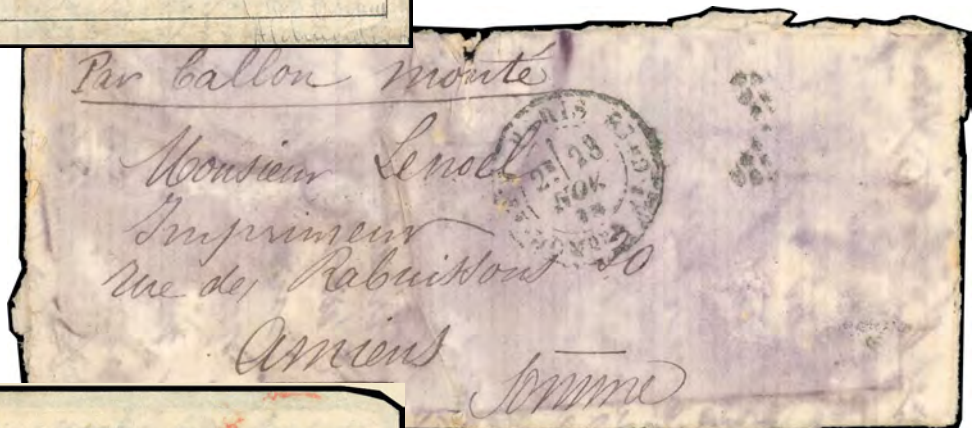 Par Ballon monté
Monsieur Lenoel
Imprimeur
rue des Rabuissons 30
Amiens
Somme
PARIS
28
NOV.